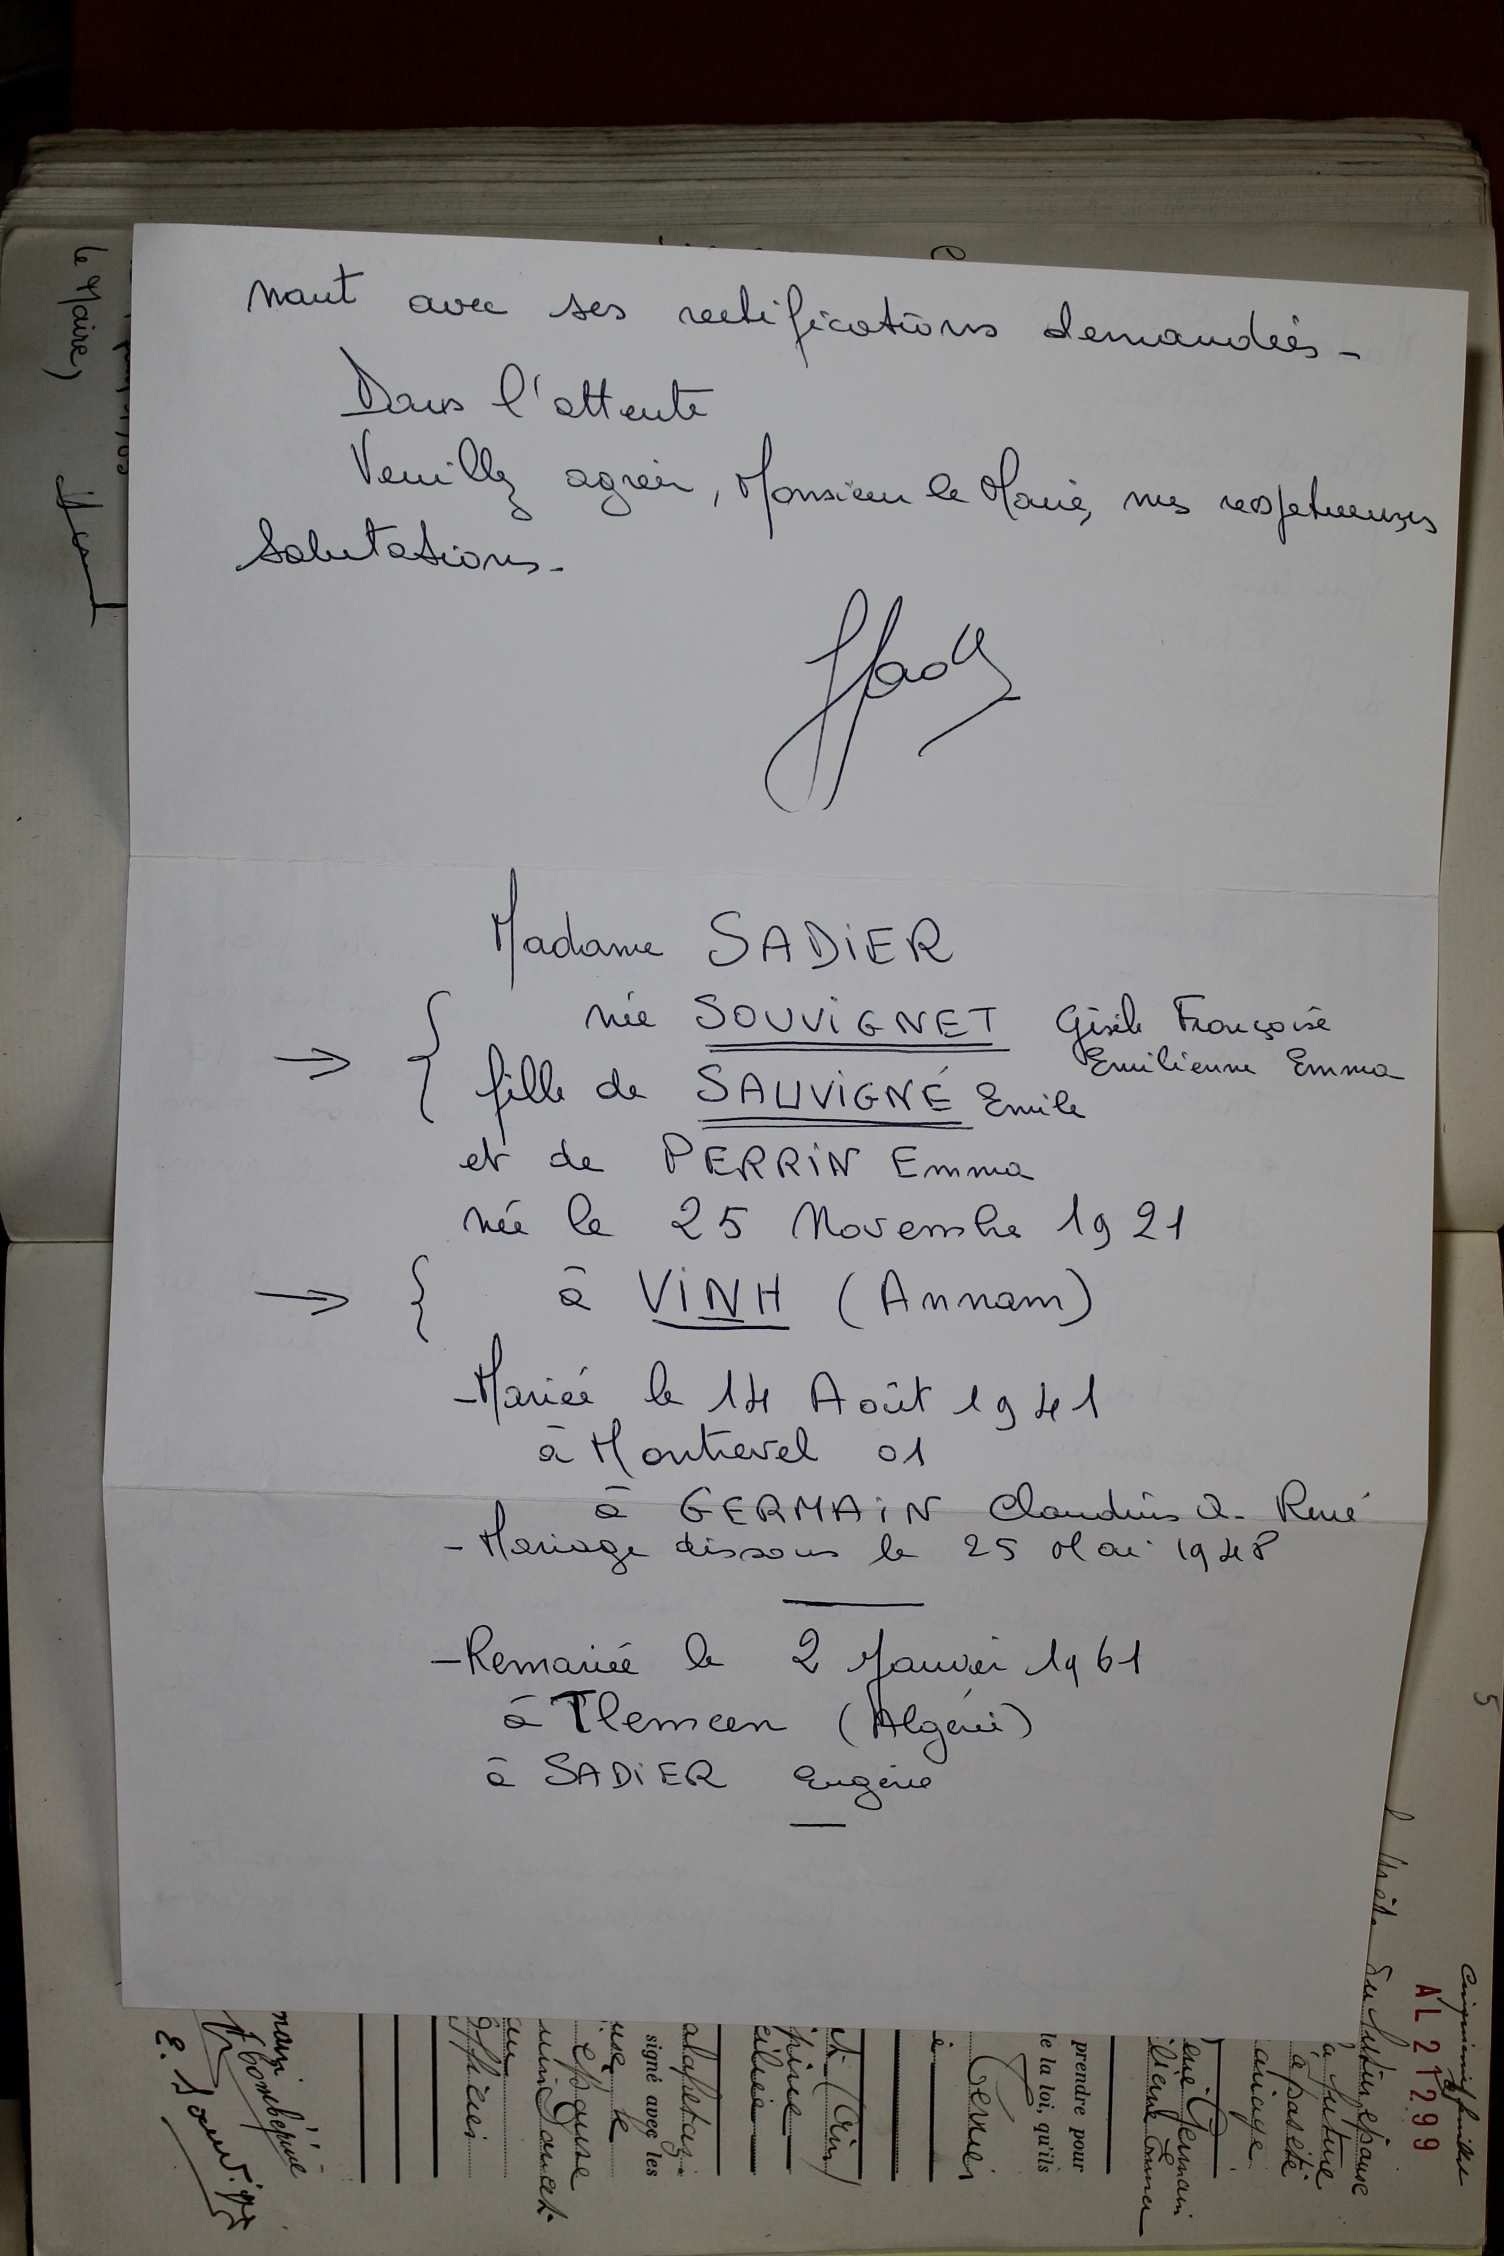 nant avec ses rectifications demandées -
Dans l'attente
Veuillez agréer, Monsieur le Maire, mes respectueuses
Salutations -
Madame SADIER
née SOUVIGNET Gisèle Françoise
Emilienne Emma
→ { fille de SAUVIGNÉ Emile
et de PERRIN Emma
née le 25 Novembre 1921
→ { à VINH (Annam)
- Mariée le 14 Août 1941
à Montrevel 01
à GERMAIN Claudius A. René
- Mariage dissous le 25 Mai 1948
- Remariée le 2 Janvier 1961
à Tlemcen (Algérie)
à SADIER Eugène
le Maire,
5
AL 21299
prendre pour
le la loi, qu'ils
signé avec les